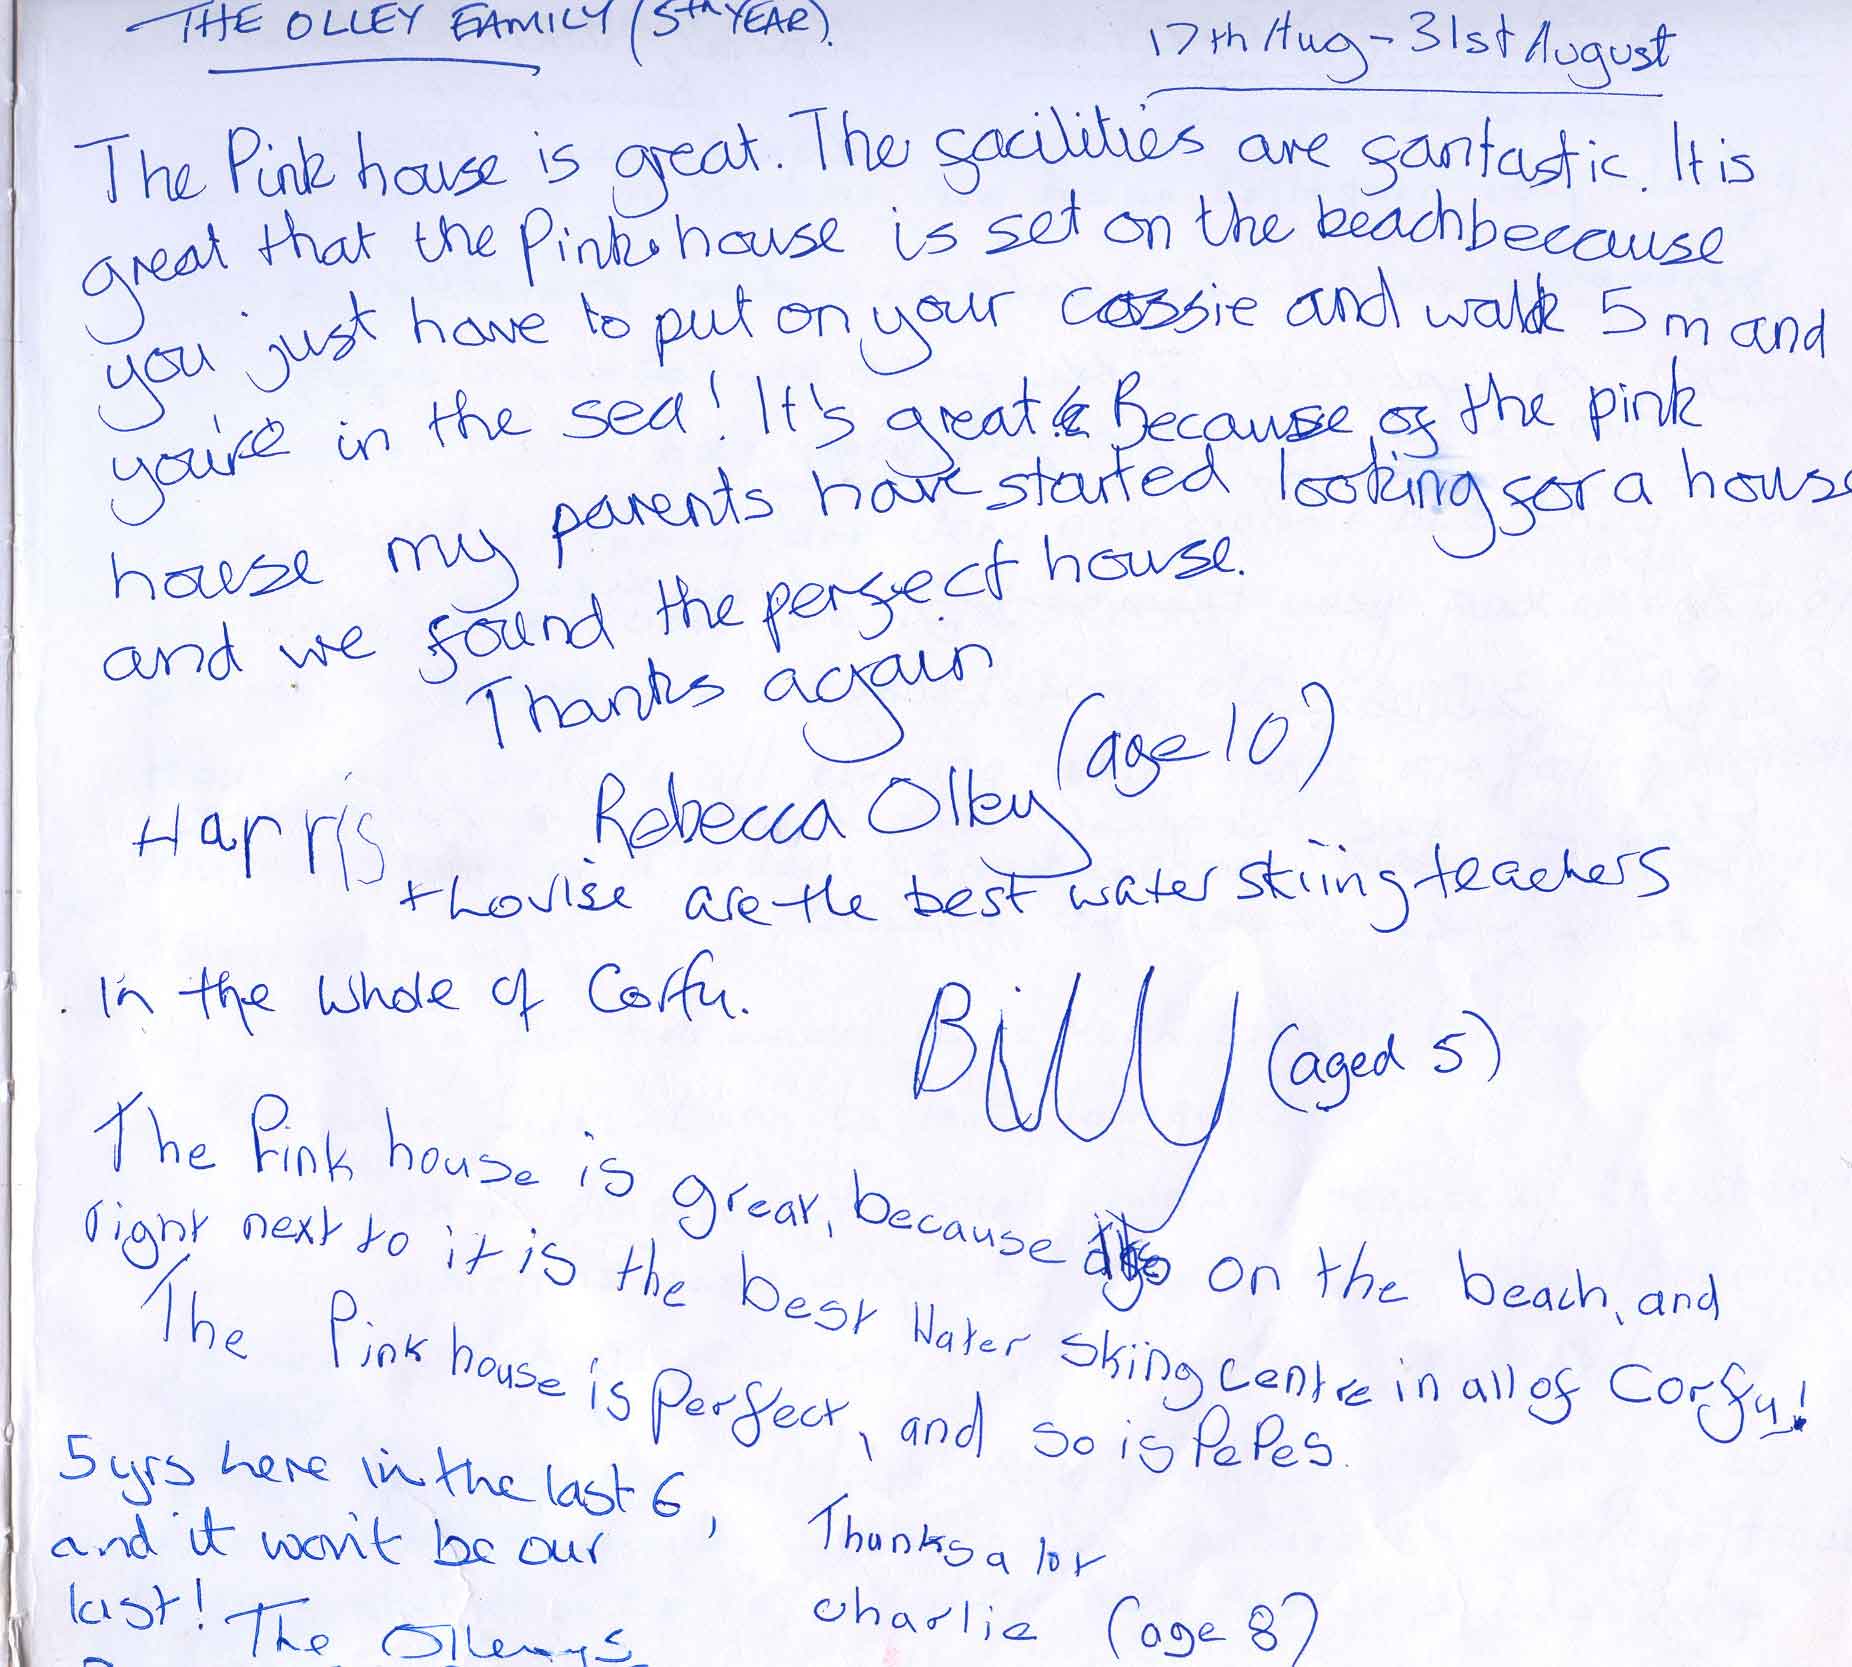 THE OLLEY FAMILY (5TH YEAR).
17th Aug - 31st August
The Pink house is great. The facilities are fantastic. It is
great that the Pink house is set on the beach because
you just have to put on your cossie and walk 5m and
you're in the sea! It's great! Because of the pink
house my parents have started looking for a house
and we found the perfect house.
Thanks again
Rebecca Olley (age 10)
Harris
+ Louise are the best water skiing teachers
in the whole of Corfu.
Billy (aged 5)
The Pink house is great, because its on the beach, and
right next to it is the best Water Skiing centre in all of Corfu!
The Pink house is perfect, and so is PePes.
Thanks a lot
charlie (age 8)
5 yrs here in the last 6,
and it won't be our
last! The Olleys